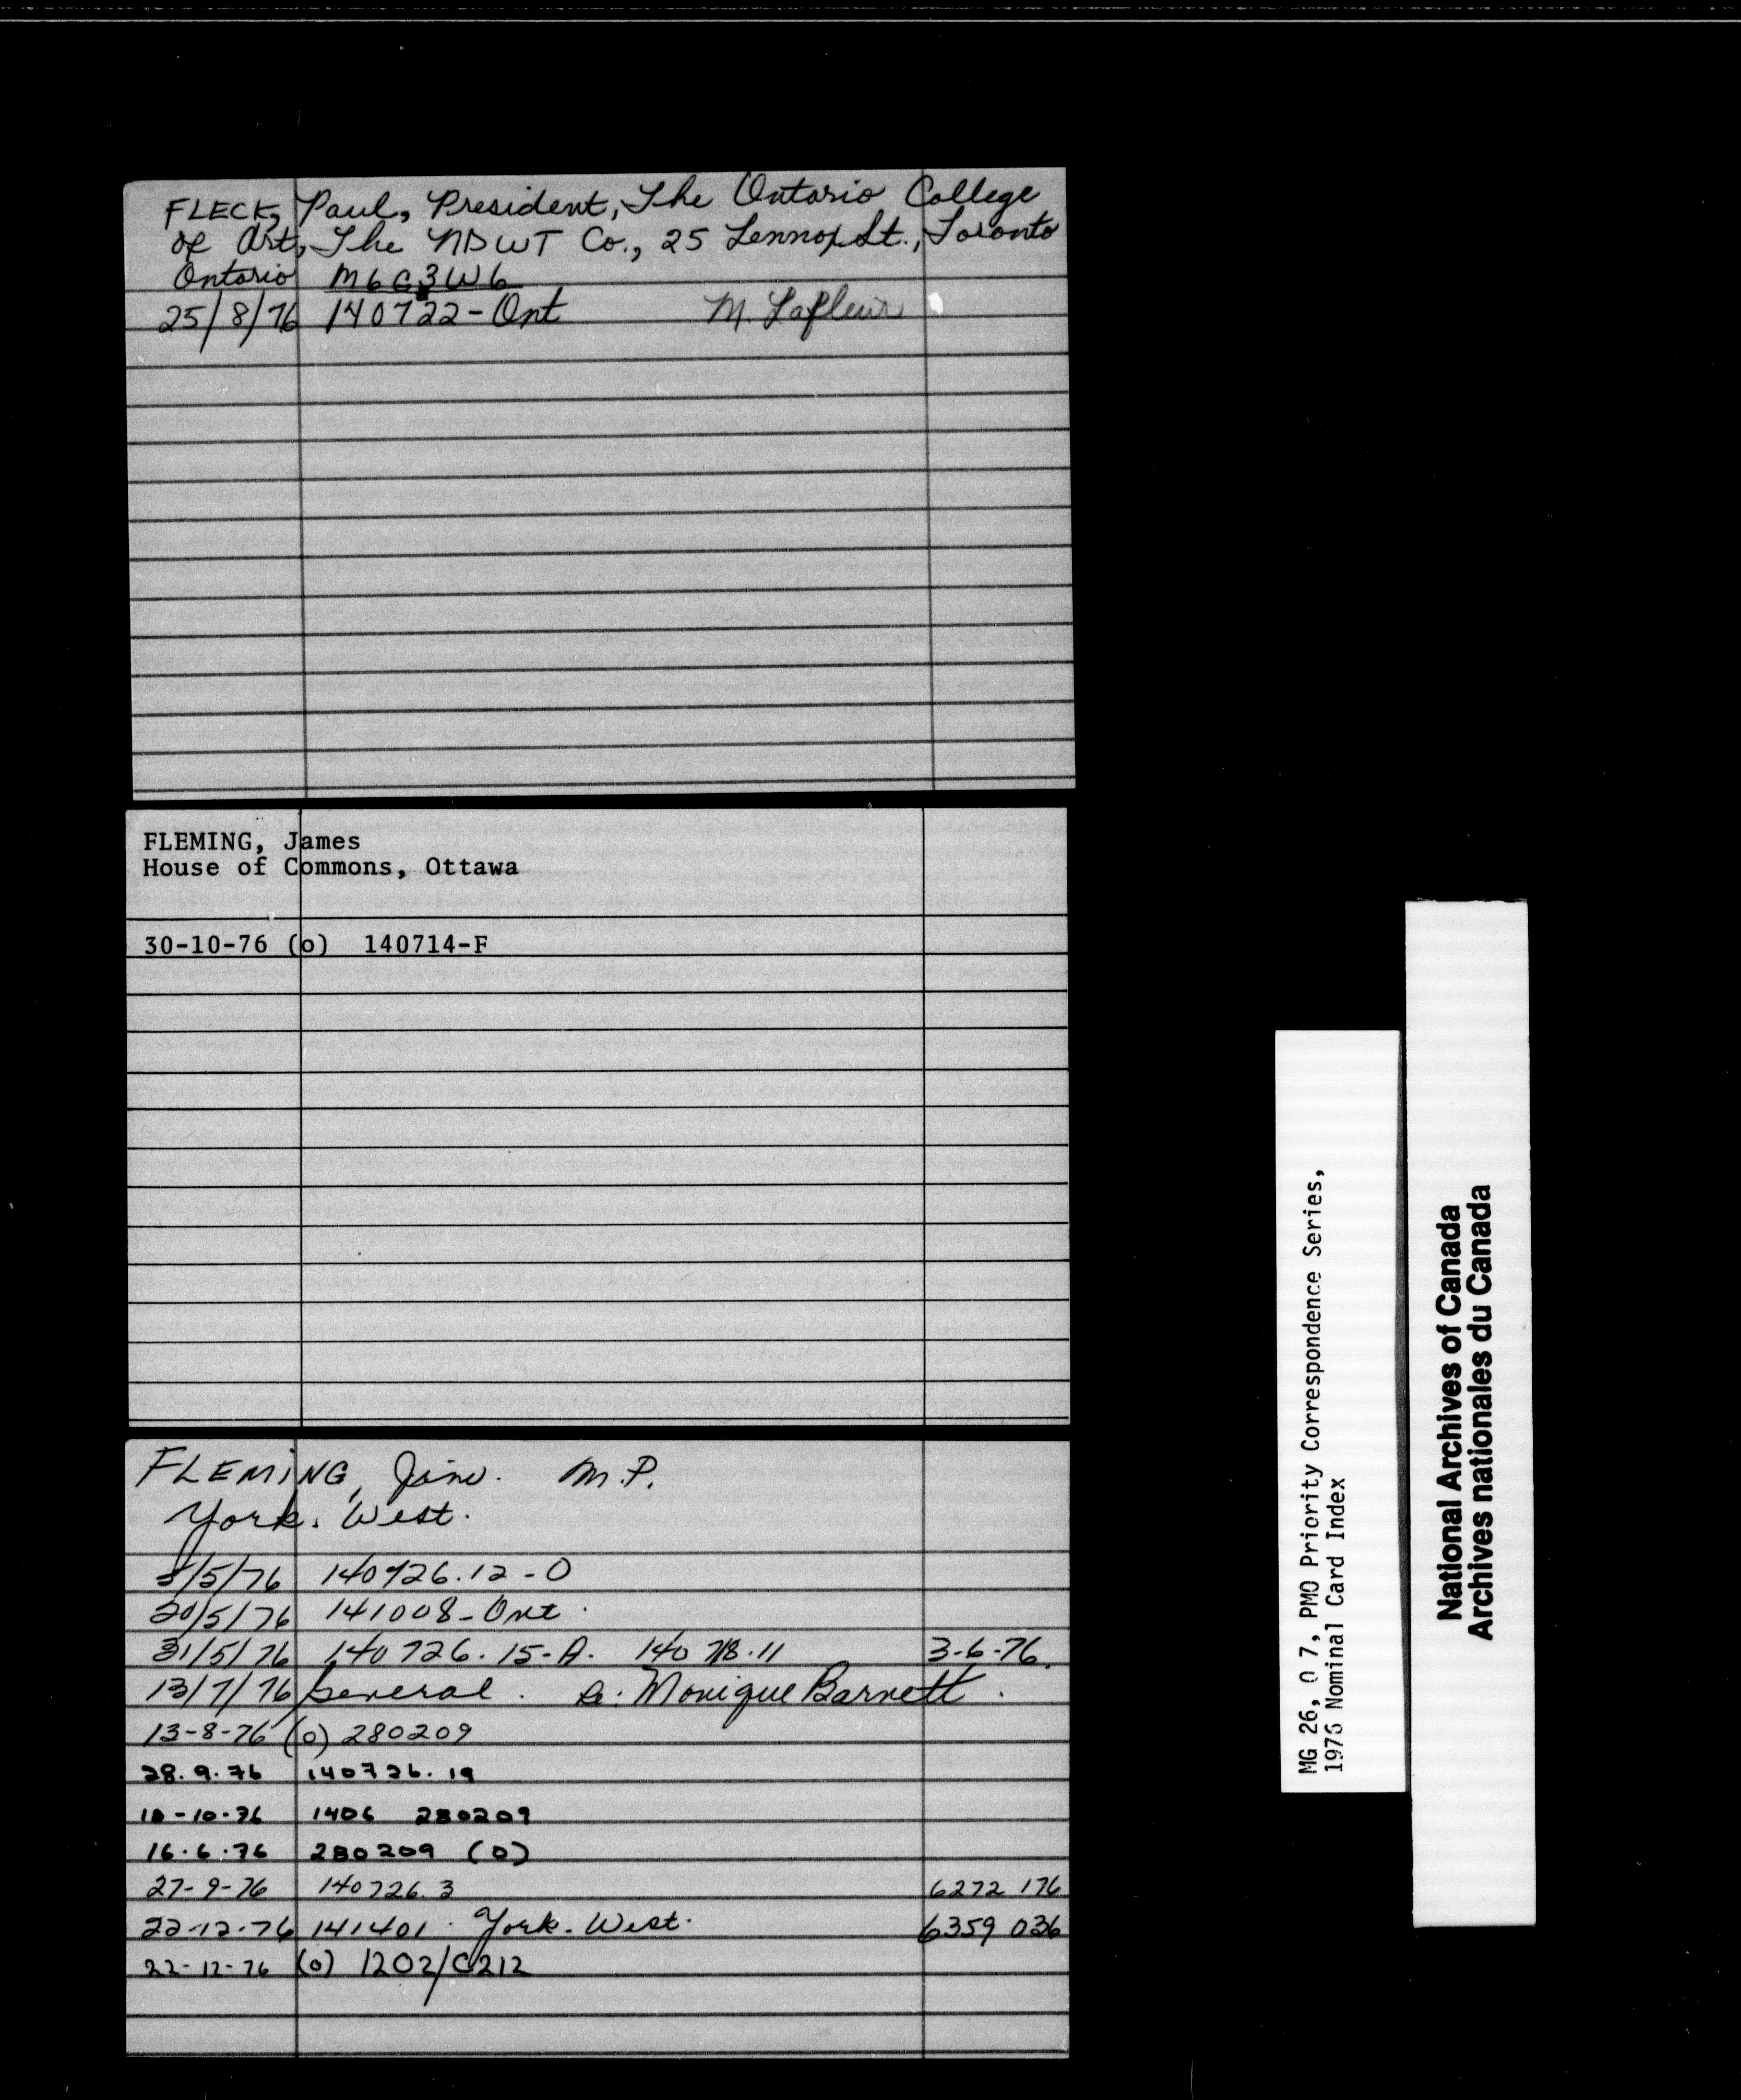 FLECK, Paul, President, The Ontario College
of Art, The NDWT Co., 25 Lennox St., Toronto
Ontario M6G3W6
25/8/76 140722-Ont M. Lafleur
FLEMING, James
House of Commons, Ottawa
30-10-76 (o) 140714-F
FLEMING, Jim. M.P.
York. West.
5/5/76 140726.12-O
20/5/76 141008-Ont.
31/5/76 140726.15-A. 140718.11 3-6-76.
13/7/76 General. a: Monique Barnett.
13-8-76 (o) 280209
28.9.76 140726.19
18-10-76 1406 280209
16.6.76 280209 (O)
27-9-76 140726.3 6272 176
22-12-76 141401. York-West. 6359 036
22-12-76 (o) 1202/C212
MG 26, O 7, PMO Priority Correspondence Series,
1976 Nominal Card Index
National Archives of Canada
Archives nationales du Canada